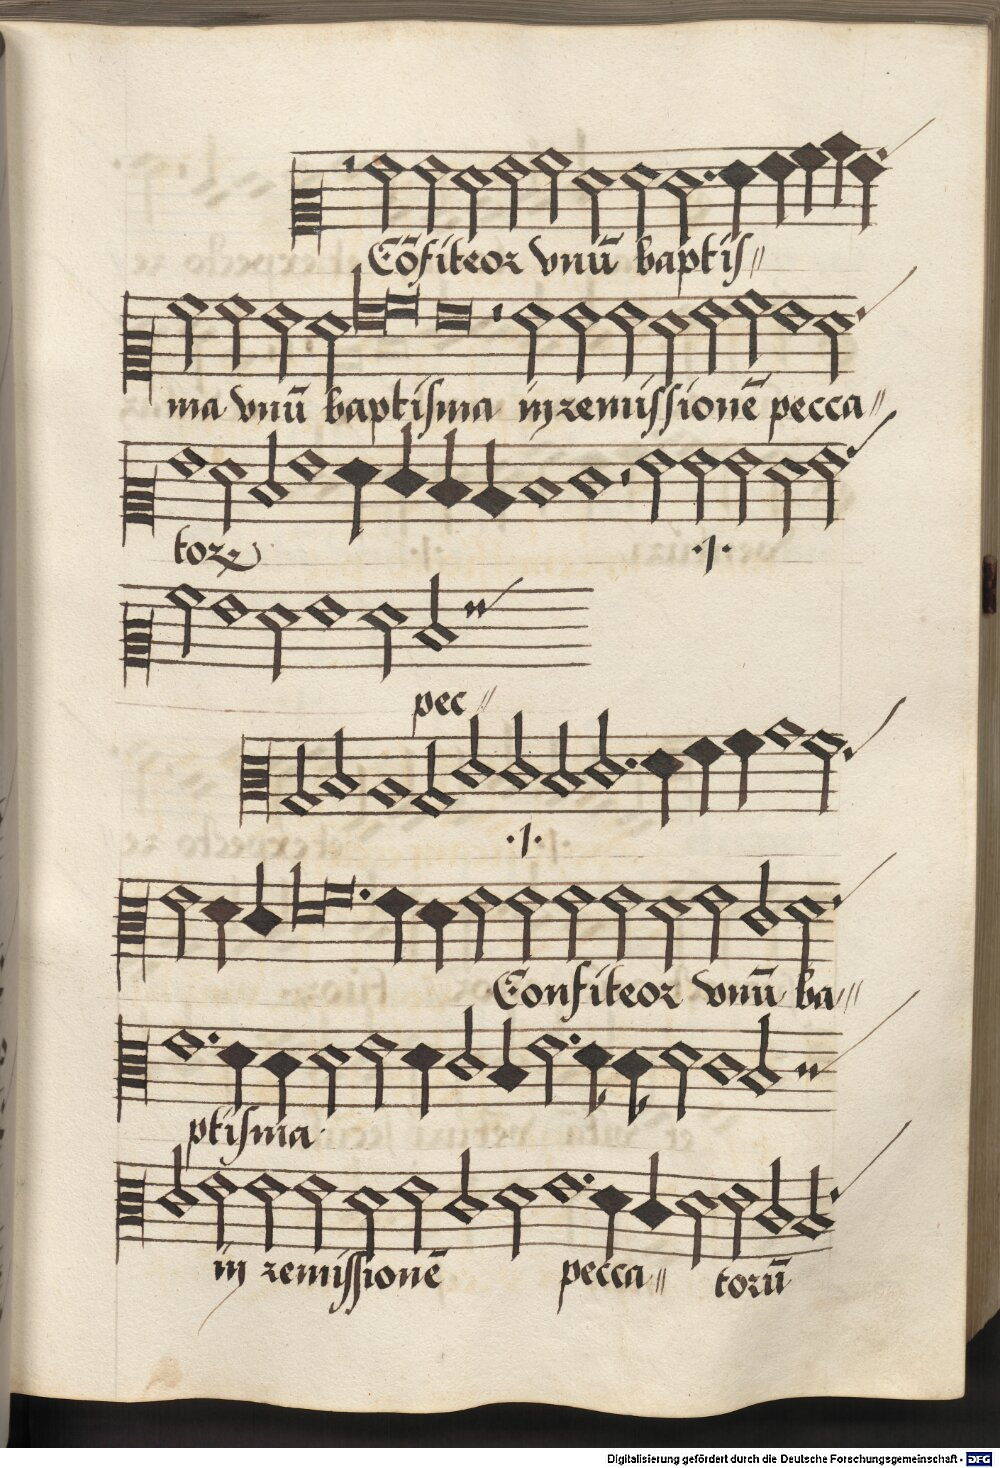 Cōfiteor vnū baptis//
ma vnū baptisma in remissionē pecca//
torꝝ ·1·
pec//
·1·
Confiteor vnū ba//
ptisma
in remissionē pecca// torū
Digitalisierung gefördert durch die Deutsche Forschungsgemeinschaft - DFG